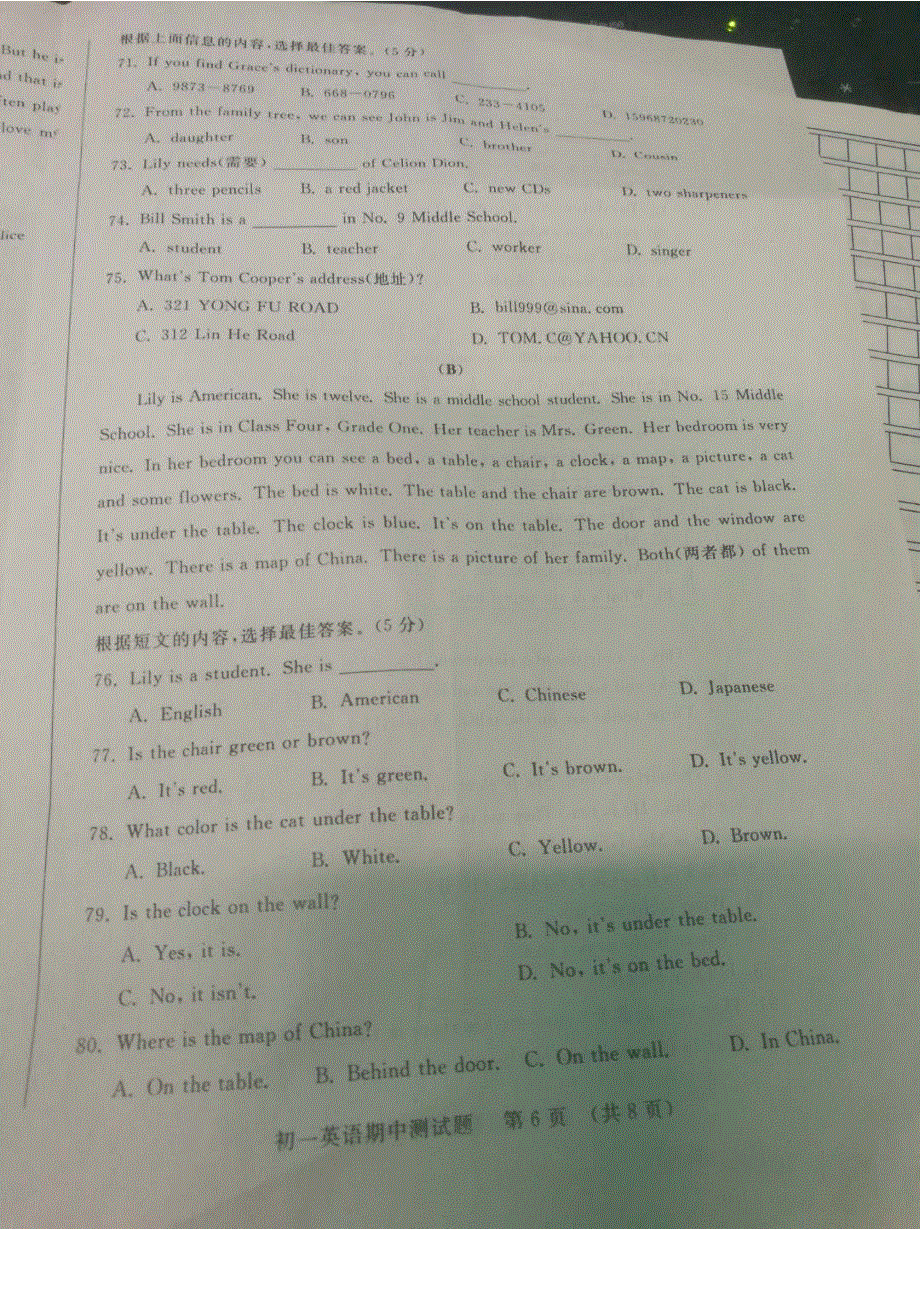 But he is
nd that is
ften play
love my
lice
根据上面信息的内容,选择最佳答案。(5 分)
71. If you find Grace's dictionary, you can call ________.
A. 9873-8769 B. 668-0796 C. 233-4105 D. 15968720230
72. From the family tree, we can see John is Jim and Helen's ________
A. daughter B. son C. brother D. Cousin
73. Lily needs(需要) ________ of Celion Dion.
A. three pencils B. a red jacket C. new CDs D. two sharpeners
74. Bill Smith is a ________ in No. 9 Middle School.
A. student B. teacher C. worker D. singer
75. What's Tom Cooper's address(地址)?
A. 321 YONG FU ROAD B. bill999@sina.com
C. 312 Lin He Road D. TOM.C@YAHOO.CN
(B)
Lily is American. She is twelve. She is a middle school student. She is in No. 15 Middle
School. She is in Class Four, Grade One. Her teacher is Mrs. Green. Her bedroom is very
nice. In her bedroom you can see a bed, a table, a chair, a clock, a map, a picture, a cat
and some flowers. The bed is white. The table and the chair are brown. The cat is black.
It's under the table. The clock is blue. It's on the table. The door and the window are
yellow. There is a map of China. There is a picture of her family. Both(两者都) of them
are on the wall.
根据短文的内容,选择最佳答案。(5 分)
76. Lily is a student. She is ________.
A. English B. American C. Chinese D. Japanese
77. Is the chair green or brown?
A. It's red. B. It's green. C. It's brown. D. It's yellow.
78. What color is the cat under the table?
A. Black. B. White. C. Yellow. D. Brown.
79. Is the clock on the wall?
A. Yes, it is. B. No, it's under the table.
C. No, it isn't. D. No, it's on the bed.
80. Where is the map of China?
A. On the table. B. Behind the door. C. On the wall. D. In China.
初一英语期中测试题 第 6 页 (共 8 页)